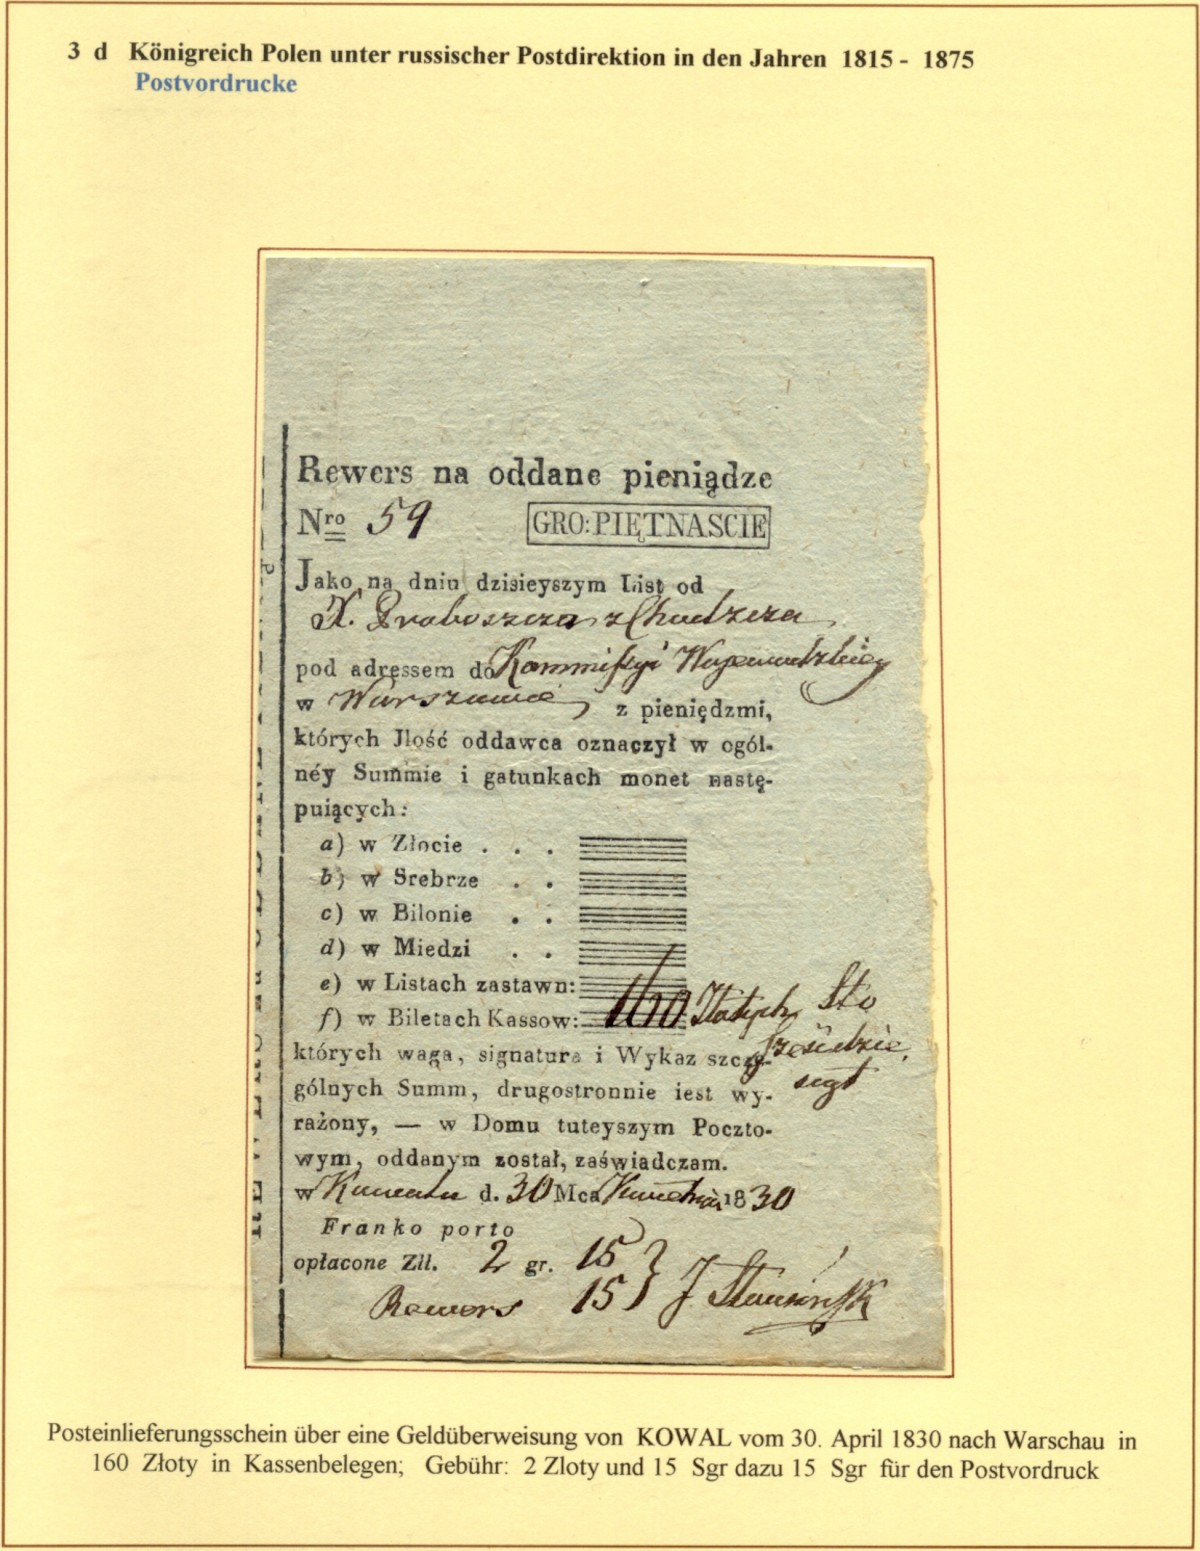 3 d Königreich Polen unter russischer Postdirektion in den Jahren 1815 - 1875
Postvordrucke
Rewers na oddane pieniądze
Nro 59 GRO: PIĘTNASCIE
Jako na dniu dzisieyszym List od
X. Proboszcza z Chodecza
pod adressem do Kommissyi Wojewodzkiey
w Warszawie z pieniędzmi,
których Jlość oddawca oznaczył w ogól-
néy Summie i gatunkach monet nastę-
puiących:
a) w Złocie . . .
b) w Srebrze . .
c) w Bilonie . .
d) w Miedzi . .
e) w Listach zastawn:
f) w Biletach Kassow: 160 Złotych Sto
których waga, signatura i Wykaz szcze-
gólnych Summ, drugostronnie iest wy-
rażony, — w Domu tuteyszym Poczto-
wym, oddanym został, zaświadczam.
w d. 30 Mca Kwietnia 1830
Franko porto
opłacone Zll. 2 gr. 15
Rewers 15 J
Posteinlieferungsschein über eine Geldüberweisung von KOWAL vom 30. April 1830 nach Warschau in
160 Złoty in Kassenbelegen; Gebühr: 2 Zloty und 15 Sgr dazu 15 Sgr für den Postvordruck